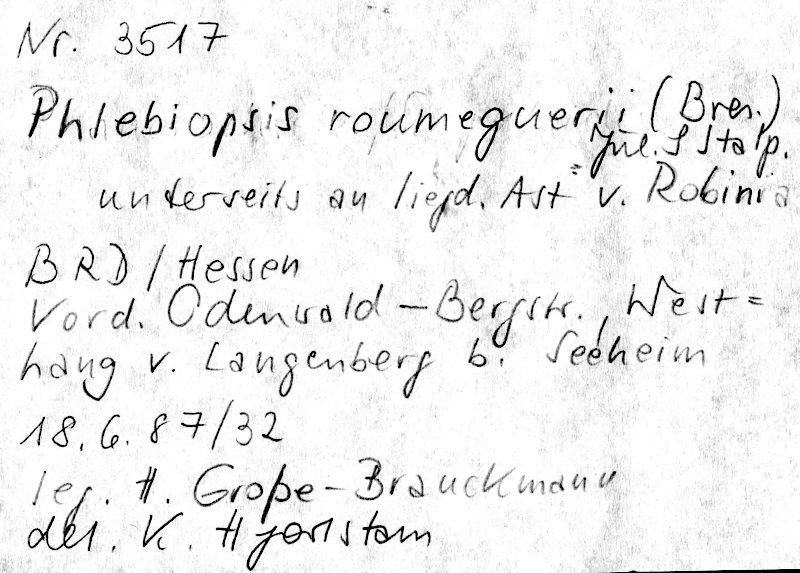 Nr. 3517
Phlebiopsis roumeguerii (Bres.)
Jül. & Stalp.
unterseits an liegd. Ast v. Robinia
BRD / Hessen
Vord. Odenwald – Bergstr., West=
hang v. Langenberg b. Seeheim
18.6.87/32
leg. H. Große-Brauckmann
det. K. Hjortstam